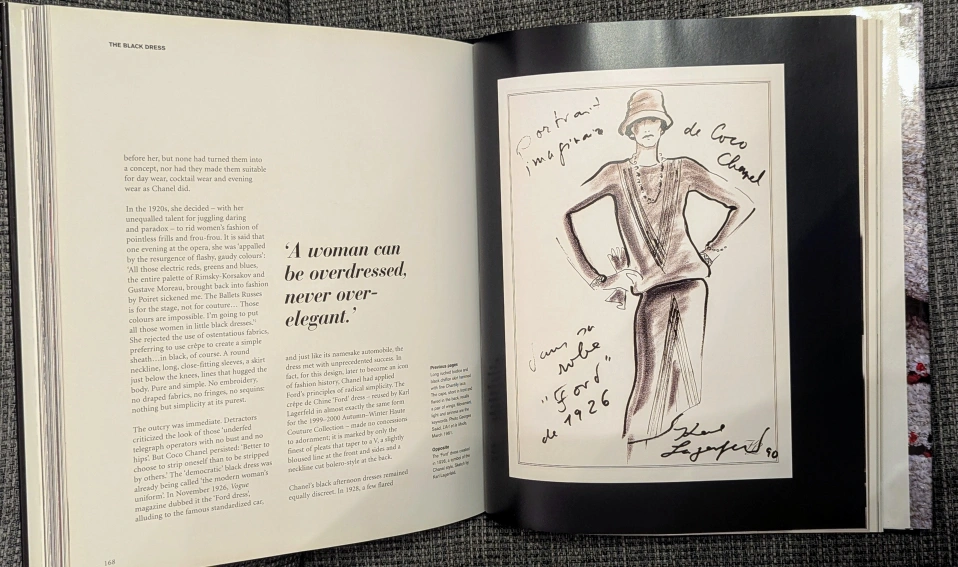 THE BLACK DRESS
before her, but none had turned them into
a concept, nor had they made them suitable
for day wear, cocktail wear and evening
wear as Chanel did.
In the 1920s, she decided – with her
unequalled talent for juggling daring
and paradox – to rid women's fashion of
pointless frills and frou-frou. It is said that
one evening at the opera, she was 'appalled
by the resurgence of flashy, gaudy colours':
'All those electric reds, greens and blues,
the entire palette of Rimsky-Korsakov and
Gustave Moreau, brought back into fashion
by Poiret sickened me. The Ballets Russes
is for the stage, not for couture… Those
colours are impossible. I'm going to put
all those women in little black dresses.'
She rejected the use of ostentatious fabrics,
preferring to use crêpe to create a simple
sheath…in black, of course. A round
neckline, long, close-fitting sleeves, a skirt
just below the knees, lines that hugged the
body. Pure and simple. No embroidery,
no draped fabrics, no fringes, no sequins:
nothing but simplicity at its purest.
The outcry was immediate. Detractors
criticized the look of those 'underfed
telegraph operators with no bust and no
hips'. But Coco Chanel persisted: 'Better to
choose to strip oneself than to be stripped
by others.' The 'democratic' black dress was
already being called 'the modern woman's
uniform'. In November 1926, Vogue
magazine dubbed it the 'Ford dress',
alluding to the famous standardized car,
168
'A woman can
be overdressed,
never over-
elegant.'
and just like its namesake automobile, the
dress met with unprecedented success. In
fact, for this design, later to become an icon
of fashion history, Chanel had applied
Ford's principles of radical simplicity. The
crêpe de Chine 'Ford' dress – reused by Karl
Lagerfeld in almost exactly the same form
for the 1999–2000 Autumn–Winter Haute
Couture Collection – made no concessions
to adornment; it is marked only by the
finest of pleats that taper to a V, a slightly
bloused line at the front and sides and a
neckline cut bolero-style at the back.
Chanel's black afternoon dresses remained
equally discreet. In 1928, a few flared
Previous pages
Opposite
The 'Ford' dress created
in 1926, a symbol of the
Chanel style. Sketch by
Karl Lagerfeld.
Portrait
imaginaire
de Coco
Chanel
dans sa
robe
"Ford"
de 1926
Karl
Lagerfeld 90